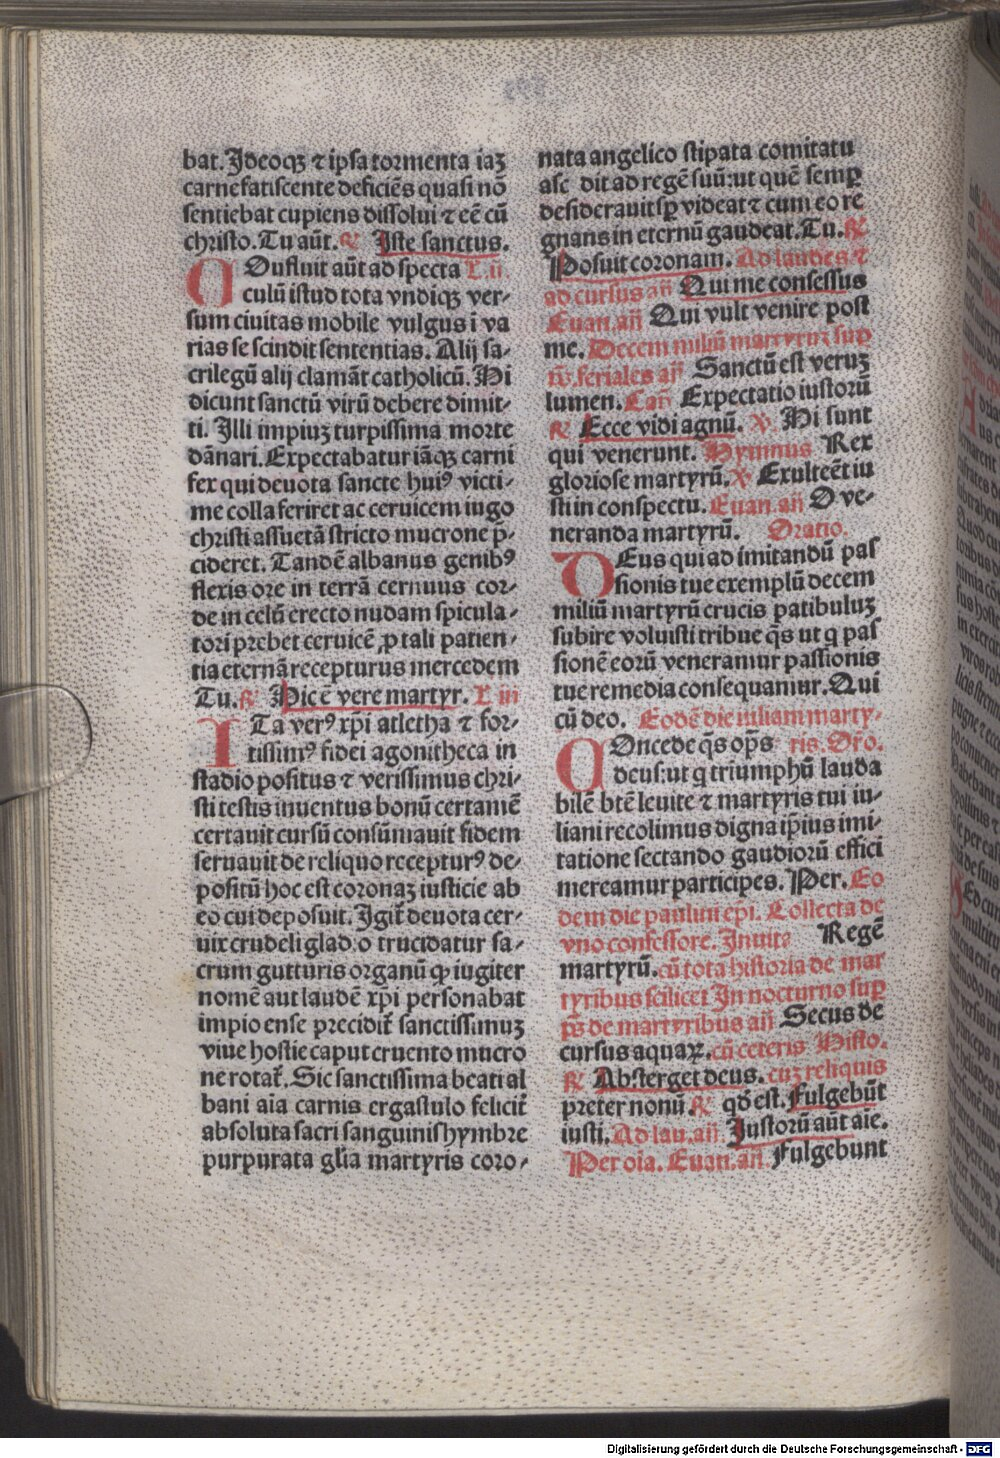 bat. Ideoqꝫ ⁊ ipsa tormenta iaꝫ
carne fatiscente deficiēs quasi nō
sentiebat cupiens dissolui ⁊ eē cū
christo. Tu aūt. ℟ Iste sanctus.
COufluit aūt ad specta L. ii
culū istud tota vndiqꝫ ver-
sum ciuitas mobile vulgus i va
rias se scindit sententias. Alij sa-
crilegū alij clamāt catholicū. Hi
dicunt sanctū virū debere dimit-
ti. Illi impiuꝫ turpissima morte
dānari. Expectabatur iāqꝫ carni
fex qui deuota sancte huiꝰ victi-
me colla feriret ac ceruicem iugo
christi assuetā stricto mucrone p̄-
cideret. Tandē albanus genibꝰ
flexis ore in terrā cernuus cor-
de in celū erecto nudam spicula-
tori prebet ceruicē, ꝓ tali patien-
tia eternā recepturus mercedem
Tu. ℟ Hic ē vere martyr. L iii
ITa verꝰ xp̄i atletha ⁊ for-
tissimꝰ fidei agonitheca in
stadio positus ⁊ verissimus chri-
sti testis inuentus bonū certamē
certauit cursū consūmauit fidem
seruauit de reliquo recepturꝰ de-
positū hoc est coronaꝫ iusticie ab
eo cui deposuit. Igit̄ deuota cer-
uix crudeli gladio trucidatur sa-
crum gutturis organū qꝫ iugiter
nomē aut laudē xp̄i personabat
impio ense precidit̄ sanctissimuꝫ
viue hostie caput cruento mucro
ne rotat̄. Sic sanctissima beati al
bani aīa carnis ergastulo felicit̄
absoluta sacri sanguinis hymbre
purpurata gl̄ia martyris coro-
nata angelico stipata comitatu
asc dit ad regē suū: ut quē semꝑ
desiderauit sꝑ videat ⁊ cum eo re
gnans in eternū gaudeat. Tu. ℟
Posuit coronam. Ad laudes ⁊
ad cursus añ Qui me confessus
Euan. añ Qui vult venire post
me. Decem miliū martyruꝫ suꝑ
p̄s. feriales añ Sanctū est veruꝫ
lumen. Cap̄ Expectatio iustorū
℟ Ecce vidi agnū. ℣. Hi sunt
qui venerunt. Hymnus Rex
gloriose martyrū. ℣ Exultēt iu
sti in conspectu. Euan. añ O ve-
neranda martyrū. Oratio.
DEus qui ad imitandū pas
sionis tue exemplū decem
miliū martyrū crucis patibuluꝫ
subire voluisti tribue q̄s ut q̄ pas
sionē eorū veneramur passionis
tue remedia consequamur. Qui
cū deo. Eodē die iuliani marty-
COncede q̄s op̄s ris. Or̄o.
deus: ut q̄ triumphū lauda
bilē btē leuite ⁊ martyris tui iu-
liani recolimus digna ip̄ius imi-
tatione sectando gaudiorū effici
mereamur participes. Per. Eo
dem die paulini ep̄i. Collecta de
vno confessore. Inuit̄ Regē
martyrū. cū tota historia de mar
tyribus scilicet In nocturno suꝑ
p̄s de martyribus añ Secus de
cursus aquaꝝ. cū ceteris Histo.
℟ Absterget deus. cuꝫ reliquis
preter nonū. ℟ qd̄ est. Fulgebūt
iusti. Ad lau. añ. Iustorū aūt aīe.
Per oīa. Euan. añ. Fulgebunt
Digitalisierung gefördert durch die Deutsche Forschungsgemeinschaft - DFG